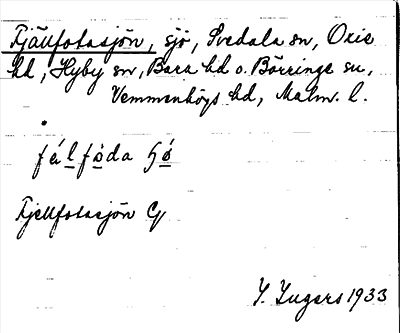 Fjällfotasjön, sjö, Svedala sn, Oxie
hd, Hyby sn, Bara hd o. Börringe sn,
Vemmenhögs hd, Malm. l.
fálfòda sjǿ
Fjellfotasjön G
Y. Ingers 1933